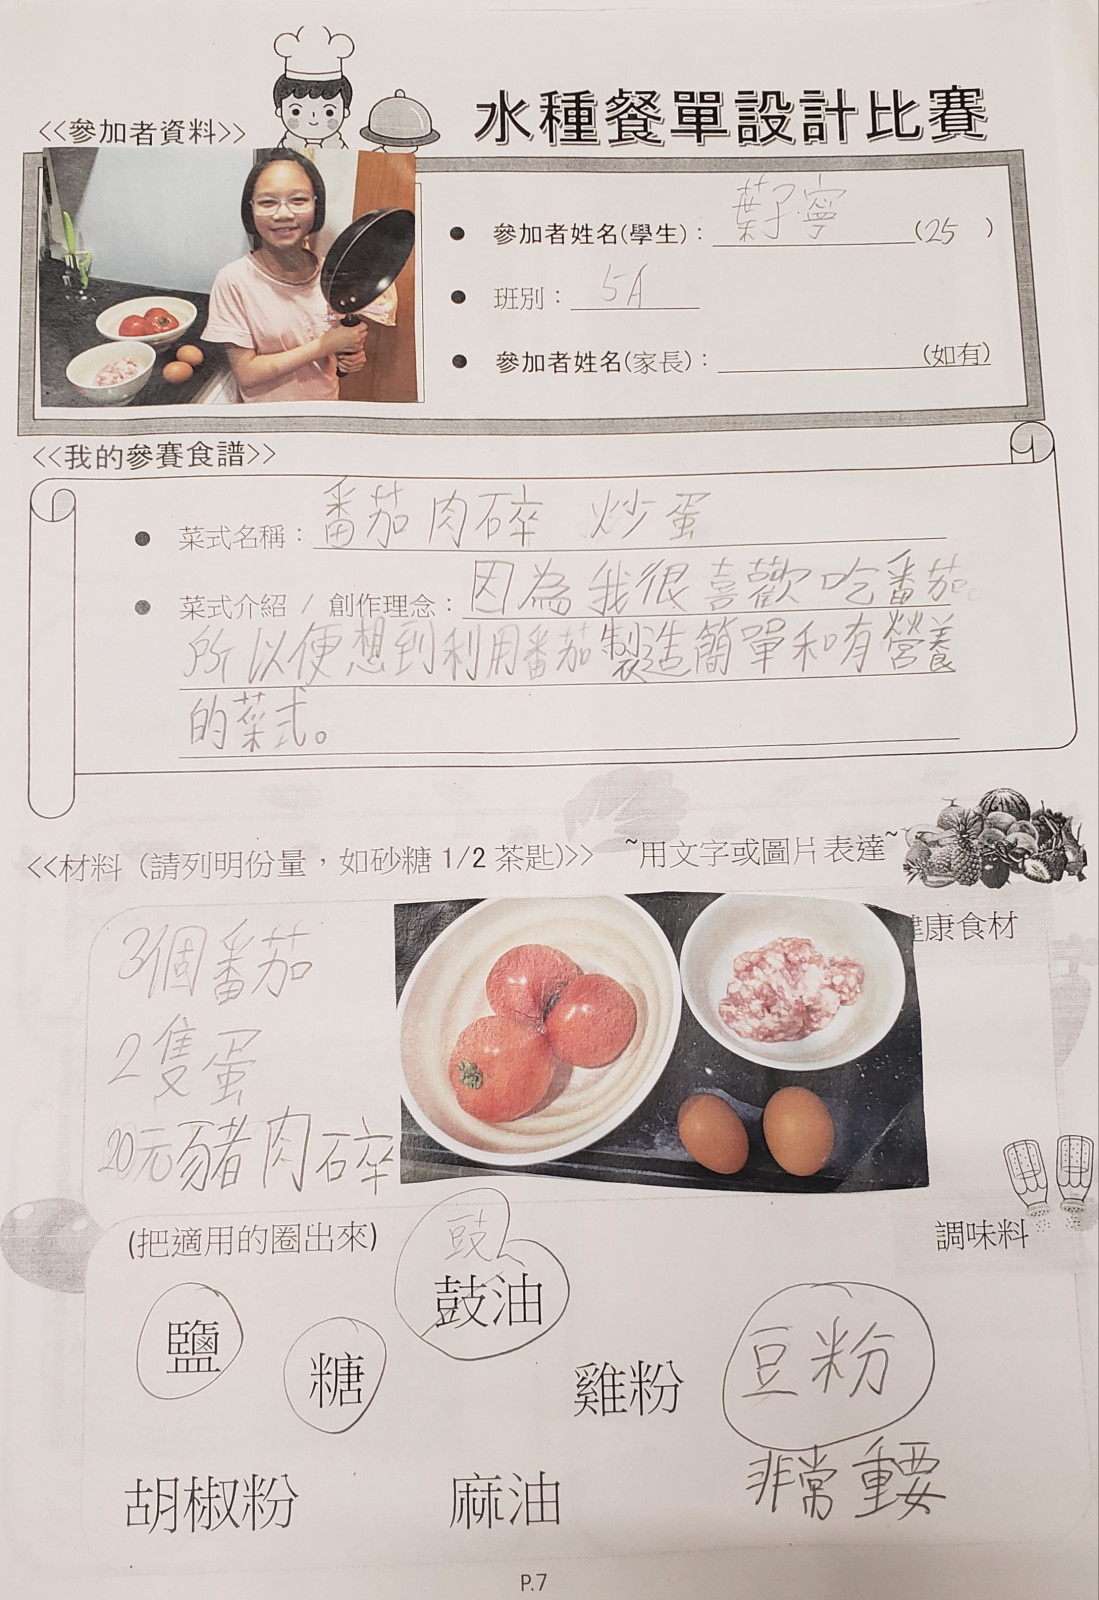 水種餐單設計比賽
<<參加者資料>>
● 參加者姓名(學生)：葉子寧 (25 )
● 班別：5A
● 參加者姓名(家長)： (如有)
<<我的參賽食譜>>
● 菜式名稱：番茄肉碎 炒蛋
● 菜式介紹 / 創作理念：因為我很喜歡吃番茄。
所以便想到利用番茄製造簡單和有營養
的菜式。
<<材料 (請列明份量，如砂糖 1/2 茶匙)>> ~用文字或圖片表達~
健康食材
3個番茄
2隻蛋
20元豬肉碎
調味料
(把適用的圈出來)
豉
鼓油
鹽
糖
雞粉
豆粉
非常重要
胡椒粉
麻油
P.7